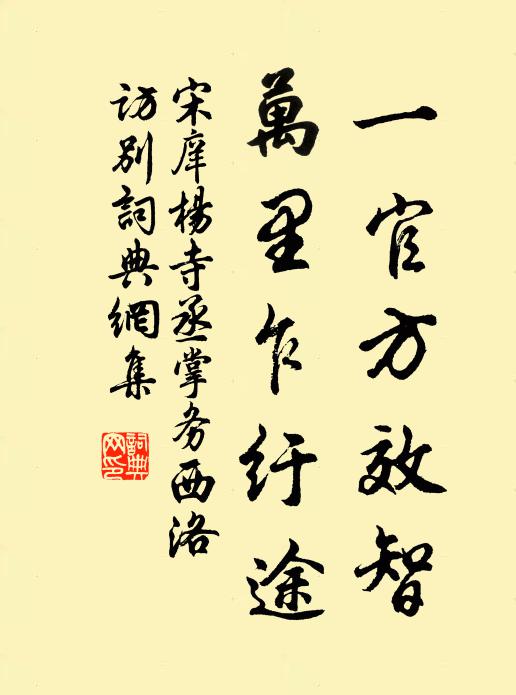 一官方效智
萬里乍紆途
宋庠楊寺丞掌务西洛
訪別詞典網集
詞典
网印